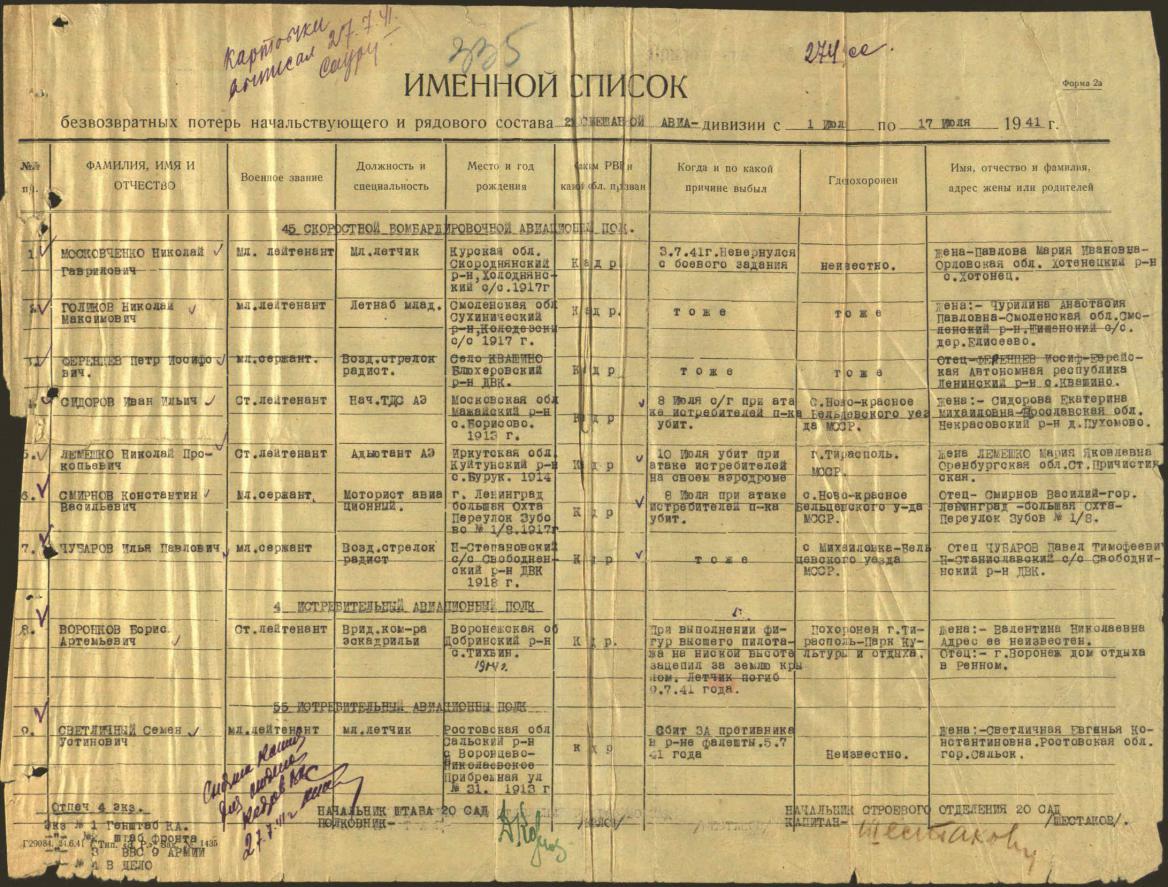 Карточки
выписал 27.7.41.
335
274 сс.
ИМЕННОЙ СПИСОК
Форма 2а
безвозвратных потерь начальствующего и рядового состава СМЕШАНОЙ АВИА-дивизии с 1 Июл по 17 Июля 1941 г.
№№ п/п. ФАМИЛИЯ, ИМЯ И ОТЧЕСТВО Военное звание Должность и специальность Место и год рождения Каким РВК и какой обл. призван Когда и по какой причине выбыл Где похоронен Имя, отчество и фамилия, адрес жены или родителей
45 СКОРОСТНОЙ БОМБАРДИРОВОЧНОЙ АВИАЦИОНЫЙ ПОЛК.
1. МОСКОВЧЕНКО Николай Мл. лейтенант Мл.летчик Курская обл. Кадр 3.7.41г.Невернулся неизвестно. Жена-Павлова Мария Ивановна-
Гаврилович Скороднянский с боевого задания Орловская обл. Хотенецкий р-н
р-н,Холоднянс- с.Хотонец.
кий с/с.1917г
2. ГОЛИКОВ Николай мл.лейтенант Летнаб млад. Смоленская обл Кадр. тоже тоже Жена:- Чурилина Анастасия
Максимович Сухинический Павловна-Смоленская обл.Смо-
р-н,Колодезски ленский р-н.Нишенский с/с.
с/с 1917 г. дер.Елисеево.
3. ФЕРЕНЦЕВ Петр Иосифо мл.сержант. Возд.стрелок Село КВАШИНО Кадр тоже тоже Отец-ФЕРЕНЦЕВ Иосиф-Еврайс-
вич. радист. Блюхеровский кая Автономная республика
р-н ДВК. Ленинский р-н с.Квашино.
4. СИДОРОВ Иван Ильич Ст.лейтенант Нач.ТДС АЭ Московская обл Кадр 8 Июля с/г при ата с.Ново-красное Жена:- Сидорова Екатерина
Мажайский р-н ке истребителей п-ка Бельцевского уез Михаиловна-Ярославская обл.
с.Борисово. убит. да МССР. Некрасовский р-н д.Пухомово.
1913 г.
5. ЛЕМЕШКО Николай Про- Ст.лейтенант Адьютант АЭ Иркутская обл. Кадр 10 Июля убит при г.Тирасполь. Жена ЛЕМЕШКО Мария Яковлевна
копьевич Куйтунский р-н атаке истребителей МССР. Оренбургская обл.Ст.Причистин
с.Бурук. 1914 на своем аэродроме ская.
6. СМИРНОВ Константин мл.сержант. Моторист авиа г. Ленинград Кадр 8 Июля при атаке с.Ново-красное Отец- Смирнов Василий-гор.
Васильевич ционный. большая Охта истребителей п-ка Бельцевского у-да Ленинград -большая Охта-
Переулок Зубо убит. МССР. Переулок Зубов № 1/8.
во № 1/8.1917г
7. ЧУБАРОВ Илья Павлович мл.сержант Возд.стрелок Н-Степановский Кадр тоже с Михаиловка-Бель Отец ЧУБАРОВ Павел Тимофеевич
радист с/с Свободнен- цевского уезда Н-Станиславский с/с Свободни-
ский р-н ДВК МССР. нский р-н ДВК.
1918 г.
4 ИСТРЕБИТЕЛЬНЫЙ АВИАЦИОНЫЙ ПОЛК
8. ВОРОНКОВ Борис Ст.лейтенант Врид.ком-ра Воронежская об Кадр. При выполнении фи- Похоронен г.Ти- Жена:- Валентина Николаевна
Артемьевич эскадрильи Добринский р-н гур высшего пилота- располь-Парк Ку- Адрес ее неизвестен.
с.Тихвин. жа на ниской высоте льтуры и отдыха. Отец:- г.Воронеж дом отдыха
1914г. зацепил за землю кры в Ренном.
лом. Летчик погиб
9.7.41 года.
55 ИСТРЕБИТЕЛЬНЫЙ АВИАЦИОНЫЙ ПОЛК
9. СВЕТЛИЧНЫЙ Семен мл.лейтенант мл.летчик Ростовская обл кадр Сбит ЗА противника Неизвестно. Жена:-Светличная Евгенья Ко
Устинович Сальский р-н в р-не фалешты.5.7 нстантиновна.Ростовская обл.
с Воронцево- 41 года гор.Сальск.
Николаевское
Прибрежная ул
№ 31. 1913 г
27.7.41г
Отпеч 4 экз. НАЧАЛЬНИК ШТАБА 20 САД НАЧАЛЬНИК СТРОЕВОГО ОТДЕЛЕНИЯ 20 САД
ПОЛКОВНИК- КАПИТАН- Шестаков /ШЕСТАКОВ/.
Экз № 1 Генштаб КА.
-"- №2 штаб фронта
3 ВВС 9 АРМИИ
№ 4 В ДЕЛО
Г29084. 24.6.41 г. Тип. Зак. № 1435